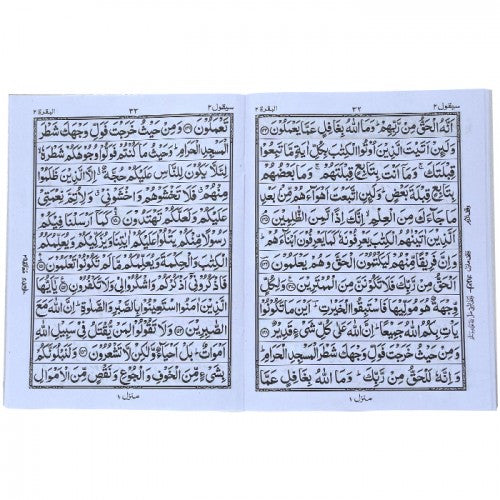 سيقول ۲ ۳۲ البقرة ۲
اَنَّهُ الْحَقُّ مِنْ رَّبِّهِمْ ؕ وَمَا اللّٰهُ بِغَافِلٍ عَمَّا يَعْمَلُوْنَ
وَلَئِنْ اَتَيْتَ الَّذِيْنَ اُوْتُوا الْكِتٰبَ بِكُلِّ اٰيَةٍ مَّا تَبِعُوْا
قِبْلَتَكَ ۚ وَمَآ اَنْتَ بِتَابِعٍ قِبْلَتَهُمْ ۚ وَمَا بَعْضُهُمْ
بِتَابِعٍ قِبْلَةَ بَعْضٍ ؕ وَلَئِنِ اتَّبَعْتَ اَهْوَآءَهُمْ مِّنْۢ بَعْدِ
مَا جَآءَكَ مِنَ الْعِلْمِ ۙ اِنَّكَ اِذًا لَّمِنَ الظّٰلِمِيْنَ
اَلَّذِيْنَ اٰتَيْنٰهُمُ الْكِتٰبَ يَعْرِفُوْنَهٗ كَمَا يَعْرِفُوْنَ اَبْنَآءَهُمْ
وَاِنَّ فَرِيْقًا مِّنْهُمْ لَيَكْتُمُوْنَ الْحَقَّ وَهُمْ يَعْلَمُوْنَ
اَلْحَقُّ مِنْ رَّبِّكَ فَلَا تَكُوْنَنَّ مِنَ الْمُمْتَرِيْنَ وَلِكُلٍّ
وِّجْهَةٌ هُوَ مُوَلِّيْهَا فَاسْتَبِقُوا الْخَيْرٰتِ ؕ اَيْنَ مَا تَكُوْنُوْا
يَاْتِ بِكُمُ اللّٰهُ جَمِيْعًا ؕ اِنَّ اللّٰهَ عَلٰى كُلِّ شَىْءٍ قَدِيْرٌ
وَمِنْ حَيْثُ خَرَجْتَ فَوَلِّ وَجْهَكَ شَطْرَ الْمَسْجِدِ الْحَرَامِ
وَاِنَّهٗ لَلْحَقُّ مِنْ رَّبِّكَ ؕ وَمَا اللّٰهُ بِغَافِلٍ عَمَّا
منزل ۱
سيقول ۲ ۳۳ البقرة ۲
تَعْمَلُوْنَ وَمِنْ حَيْثُ خَرَجْتَ فَوَلِّ وَجْهَكَ شَطْرَ
الْمَسْجِدِ الْحَرَامِ ؕ وَحَيْثُ مَا كُنْتُمْ فَوَلُّوْا وُجُوْهَكُمْ شَطْرَهٗ
لِئَلَّا يَكُوْنَ لِلنَّاسِ عَلَيْكُمْ حُجَّةٌ ۙ اِلَّا الَّذِيْنَ ظَلَمُوْا
مِنْهُمْ ۙ فَلَا تَخْشَوْهُمْ وَاخْشَوْنِىْ ۙ وَلِاُتِمَّ نِعْمَتِىْ
عَلَيْكُمْ وَلَعَلَّكُمْ تَهْتَدُوْنَ كَمَآ اَرْسَلْنَا فِيْكُمْ
رَسُوْلًا مِّنْكُمْ يَتْلُوْا عَلَيْكُمْ اٰيٰتِنَا وَيُزَكِّيْكُمْ وَيُعَلِّمُكُمُ
الْكِتٰبَ وَالْحِكْمَةَ وَيُعَلِّمُكُمْ مَّا لَمْ تَكُوْنُوْا تَعْلَمُوْنَ
فَاذْكُرُوْنِىْٓ اَذْكُرْكُمْ وَاشْكُرُوْا لِىْ وَلَا تَكْفُرُوْنِ يٰٓاَيُّهَا
الَّذِيْنَ اٰمَنُوا اسْتَعِيْنُوْا بِالصَّبْرِ وَالصَّلٰوةِ ؕ اِنَّ اللّٰهَ مَعَ
الصّٰبِرِيْنَ وَلَا تَقُوْلُوْا لِمَنْ يُّقْتَلُ فِىْ سَبِيْلِ اللّٰهِ
اَمْوَاتٌ ؕ بَلْ اَحْيَآءٌ وَّلٰكِنْ لَّا تَشْعُرُوْنَ وَلَنَبْلُوَنَّكُمْ
بِشَىْءٍ مِّنَ الْخَوْفِ وَالْجُوْعِ وَنَقْصٍ مِّنَ الْاَمْوَالِ
منزل ۱